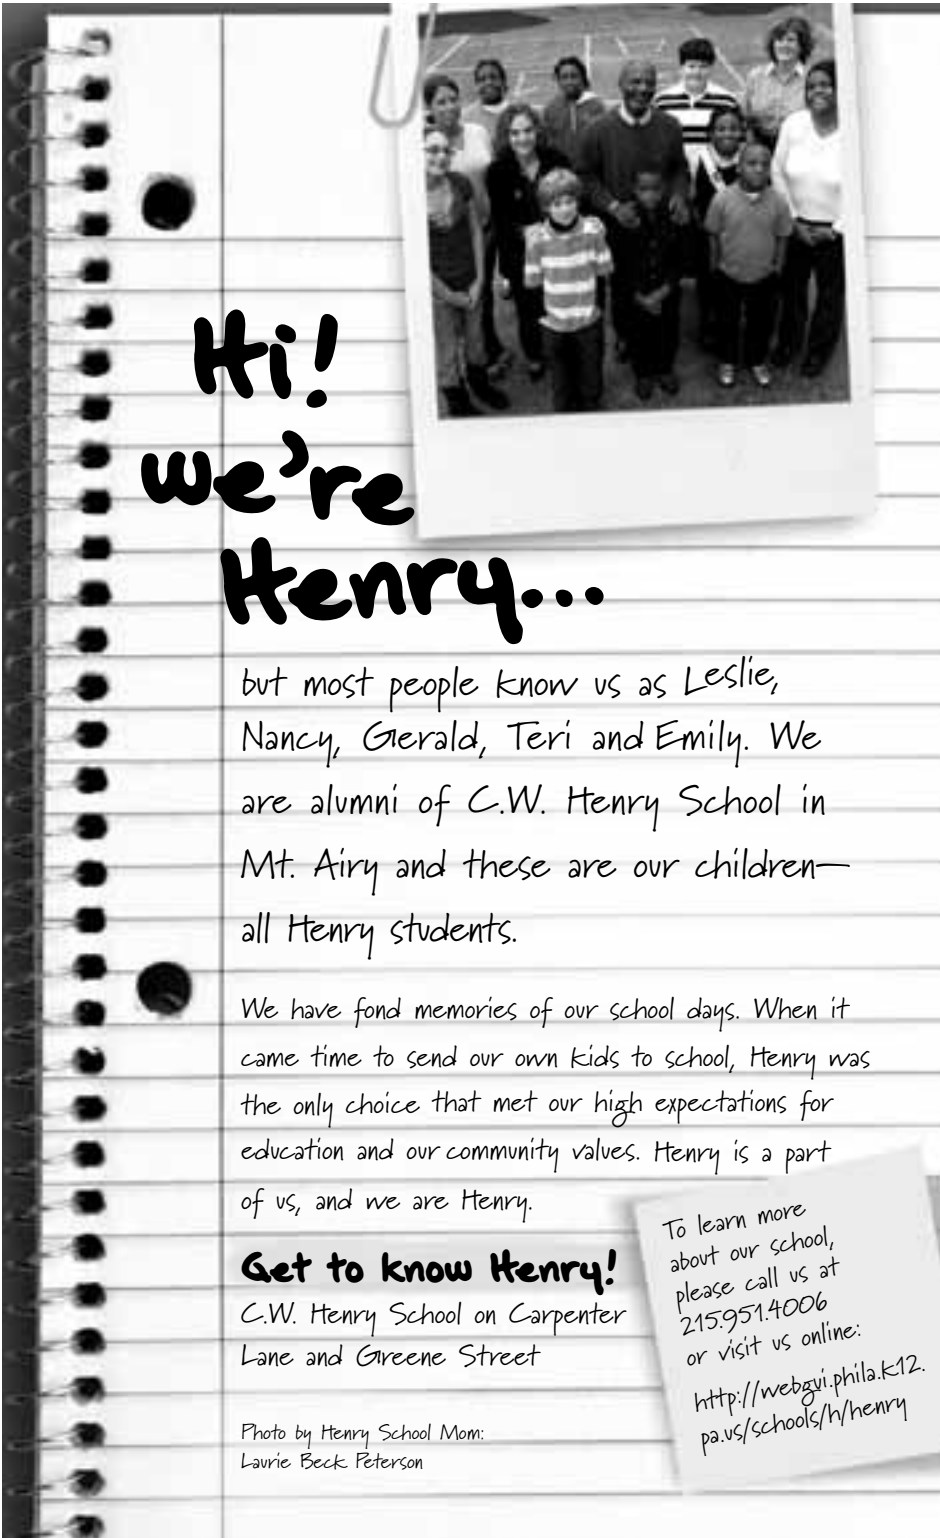 Hi!
we're
Henry...
but most people know us as Leslie,
Nancy, Gerald, Teri and Emily. We
are alumni of C.W. Henry School in
Mt. Airy and these are our children—
all Henry students.
We have fond memories of our school days. When it
came time to send our own kids to school, Henry was
the only choice that met our high expectations for
education and our community values. Henry is a part
of us, and we are Henry.
Get to know Henry!
C.W. Henry School on Carpenter
Lane and Greene Street
Photo by Henry School Mom:
Laurie Beck Peterson
To learn more
about our school,
please call us at
215.951.4006
or visit us online:
http://webgui.phila.k12.
pa.us/schools/h/henry